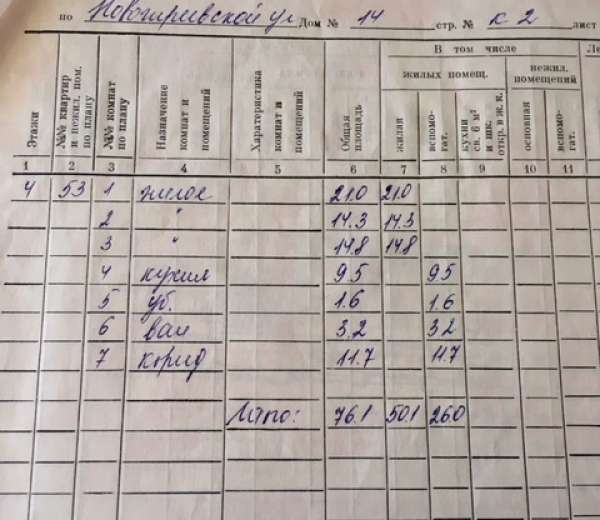 по Новогиреевской ул Дом № 14 стр. № к 2 лист
Этажи
№№ квартир и нежил. пом. по плану
№№ комнат по плану
Назначение комнат и помещений
Характеристика комнат и помещений
Общая площадь
В том числе
жилых помещ.
нежил. помещений
жилая
вспомо- гат.
кухни св. 6 м² и шк. откр. в ж. к.
основная
вспомо- гат.
1 2 3 4 5 6 7 8 9 10 11
4 53 1 жилое 21.0 21.0
2 " 14.3 14.3
3 " 14.8 14.8
4 кухня 9.5 9.5
5 уб. 1.6 1.6
6 ван 3.2 3.2
7 корид 11.7 11.7
Итого: 76.1 50.1 26.0